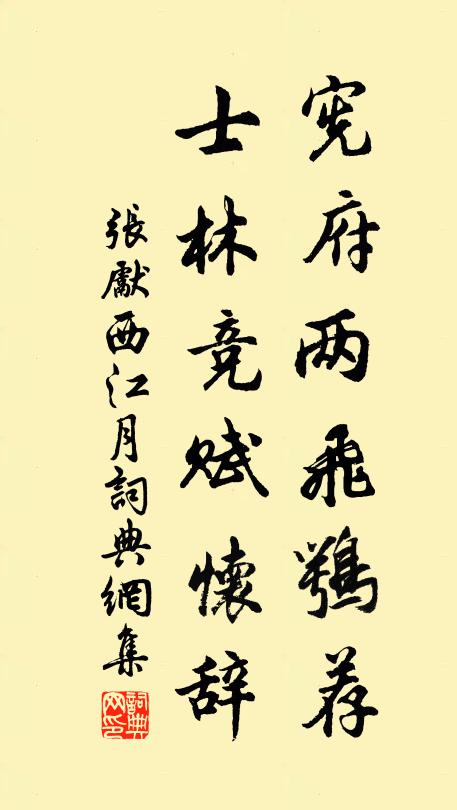 宪府两飛鶚荐
士林竞赋懷辞
張獻西江月詞典網集
詞典网印